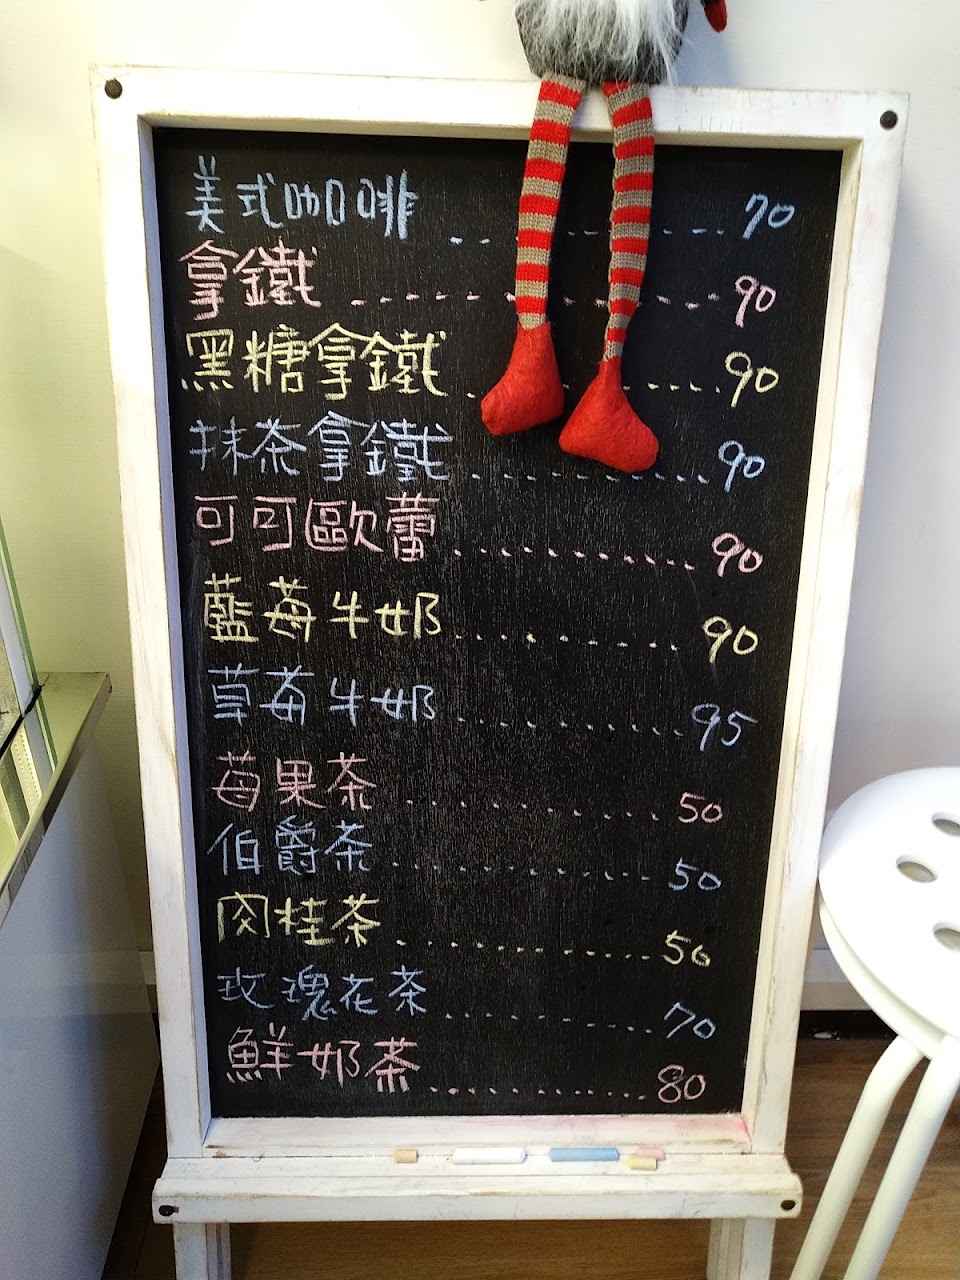 美式咖啡 ......... 70
拿鐵 ......... 90
黑糖拿鐵 ......... 90
抹茶拿鐵 ......... 90
可可歐蕾 ......... 90
藍莓牛奶 ......... 90
草莓牛奶 ......... 95
莓果茶 ......... 50
伯爵茶 ......... 50
肉桂茶 ......... 50
玫瑰花茶 ......... 70
鮮奶茶 ......... 80